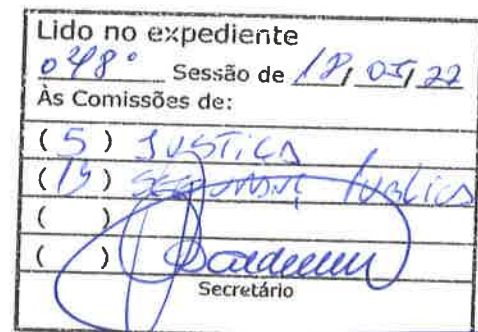 Lido no expediente
048° Sessão de 18/05/22
Às Comissões de:
(5) JUSTIÇA
(15) SEGURANÇA PUBLICA
( )
( )
Secretário